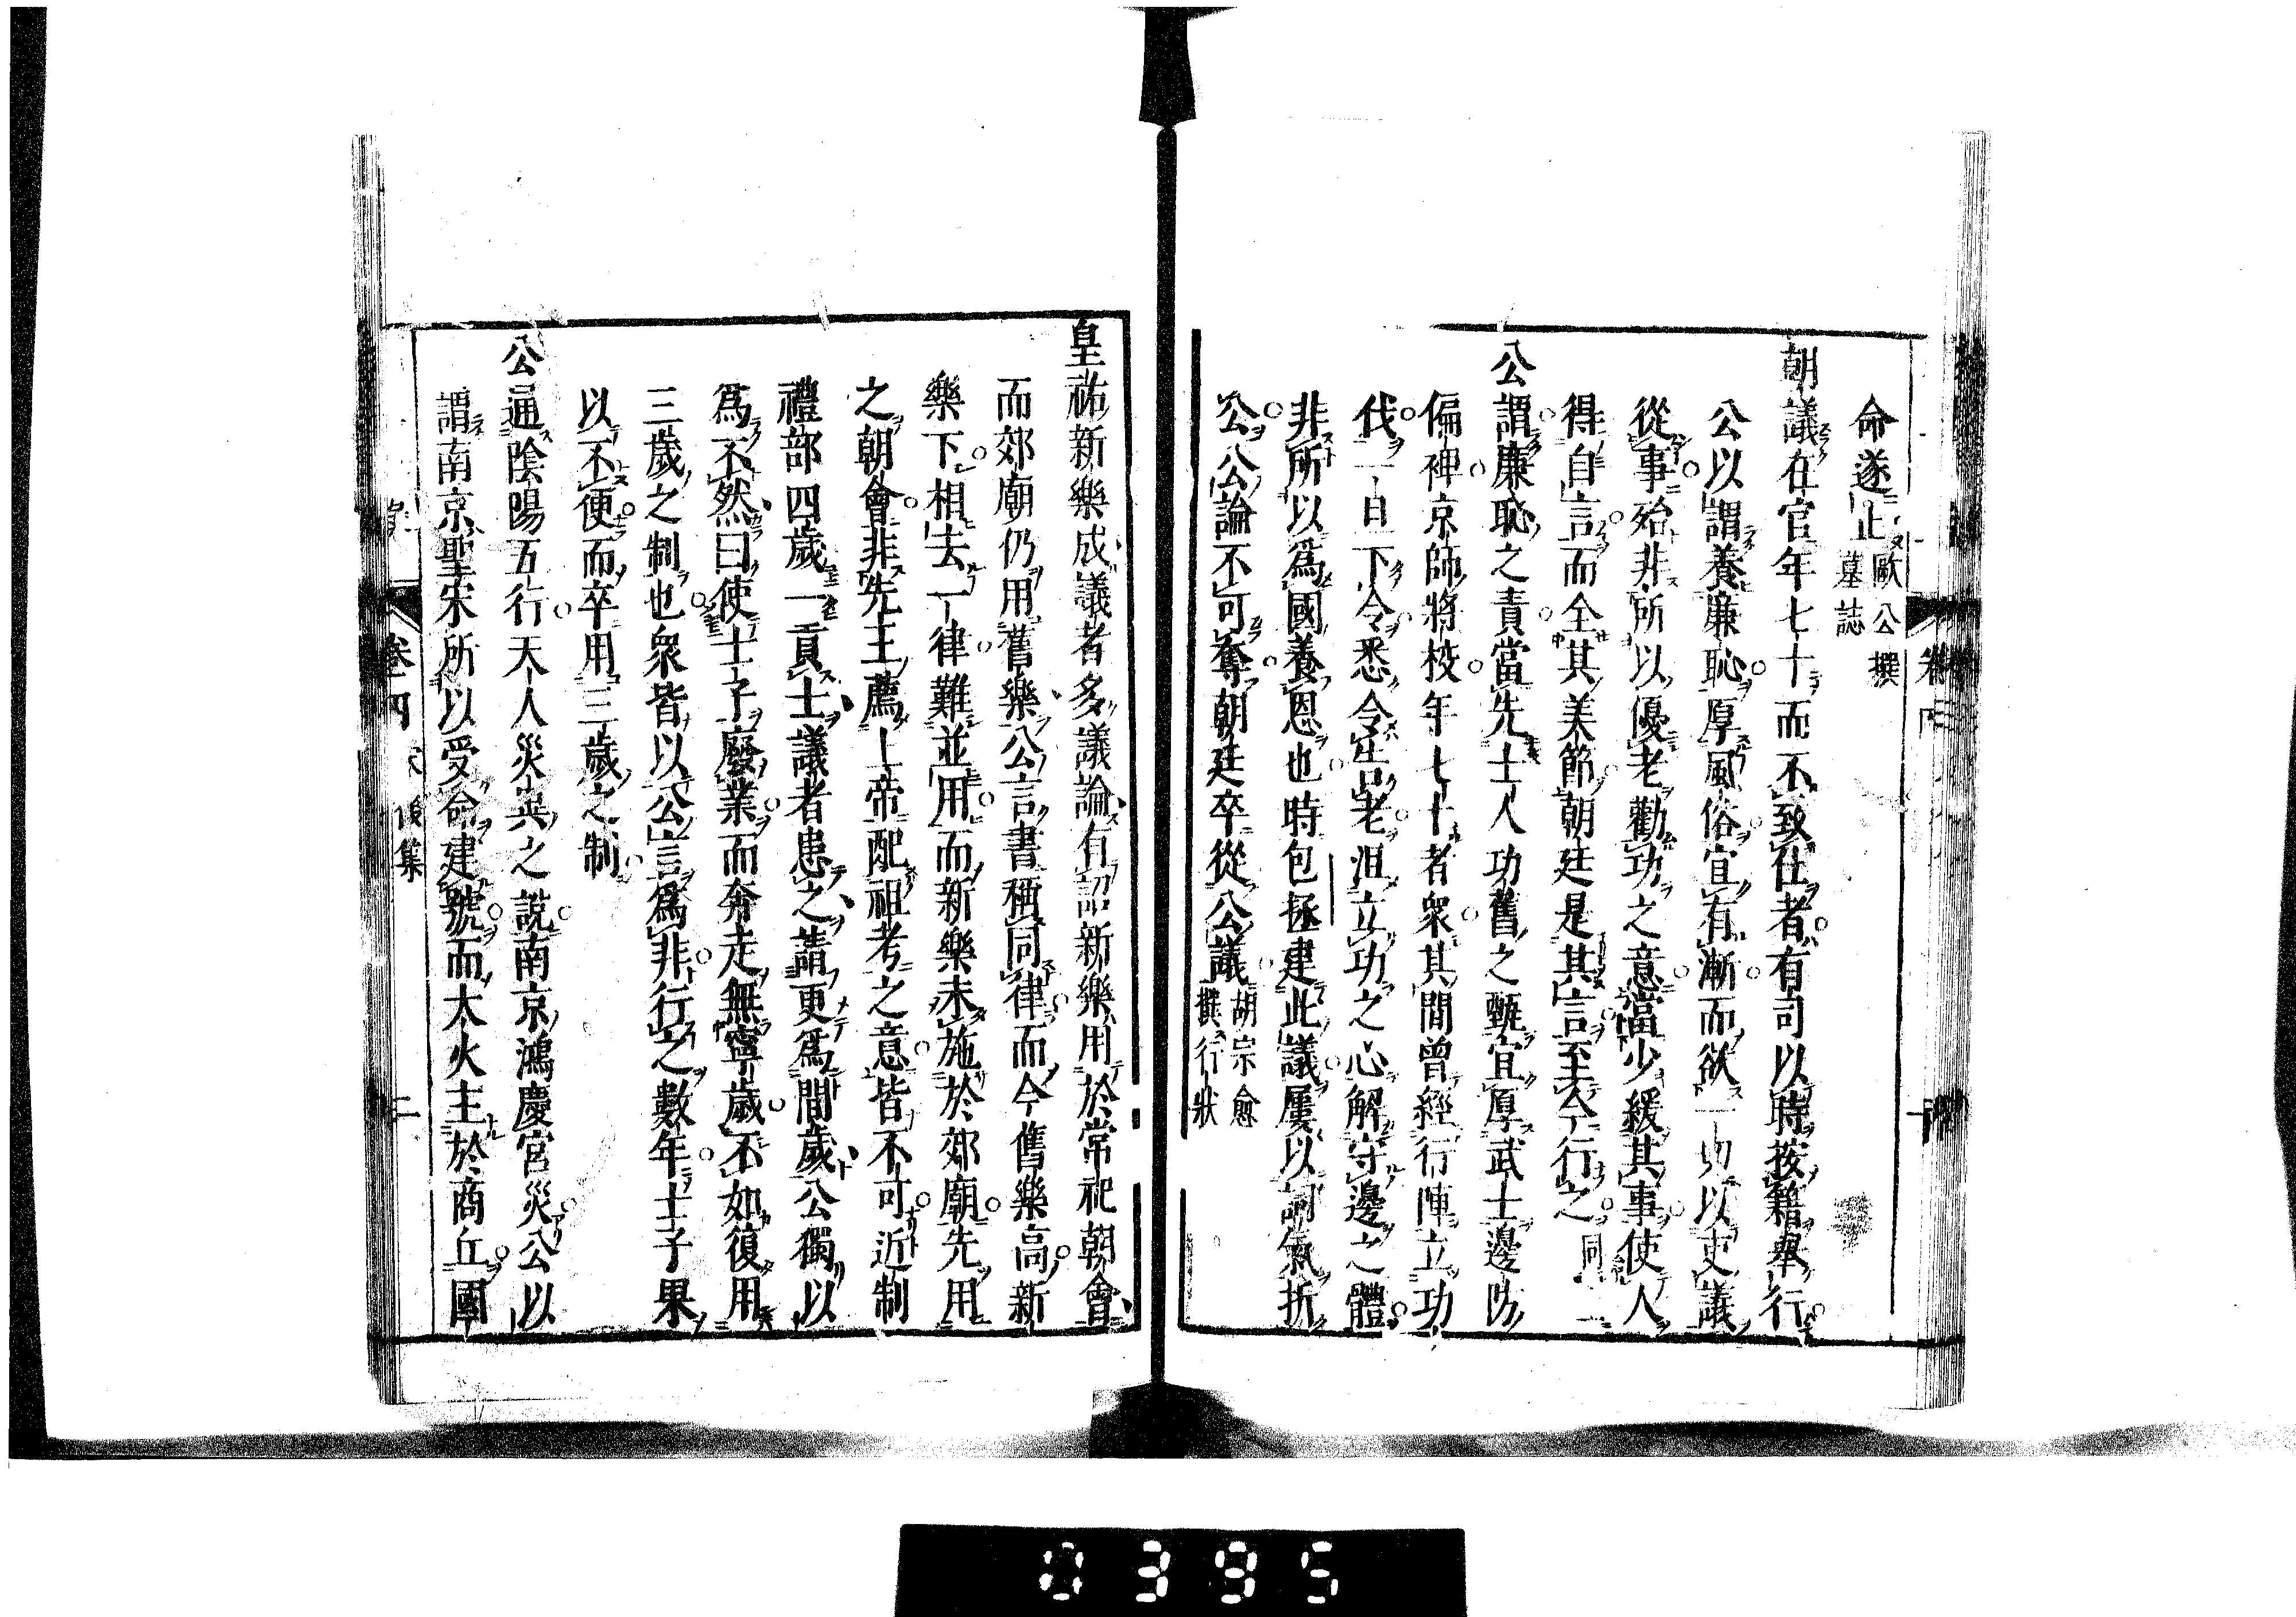 命遂止歐公撰墓誌
朝議在官年七十而不致仕者有司以時按籍舉行
公以謂養廉恥厚風俗宜有漸而欲一切以吏議
從事殆非所以優老勸功之意當少緩其事使人
得自言而全其美節朝廷是其言至今行之同上
公謂廉恥之責當先士人功舊之甄宜厚武士邊防
偏裨京師將校年七十者衆其間曾經行陣立功
伐一日下令悉令告老沮立功之心解守邊之體
非所以爲國養恩也時包拯建此議屢以詞氣折
公公論不可奪朝廷卒從公議胡宗愈撰行狀
皇祐新樂成議者多議論有詔新樂用於常祀朝會
而郊廟仍用舊樂公言書稱同律而今舊樂高新
樂下相去一律難並用而新樂未施於郊廟先用
之朝會非先王薦上帝配祖考之意皆不可近制
禮部四歲一貢士議者患之請更爲間歲公獨以
爲不然曰使士子廢業而奔走無寧歲不如復用
三歲之制也衆皆以公言爲非行之數年士子果
以不便而卒用三歲之制
公通陰陽五行天人災異之說南京鴻慶宮災公以
謂南京聖宋所以受命建號而大火主於商丘國
卷四
後集
二
0395